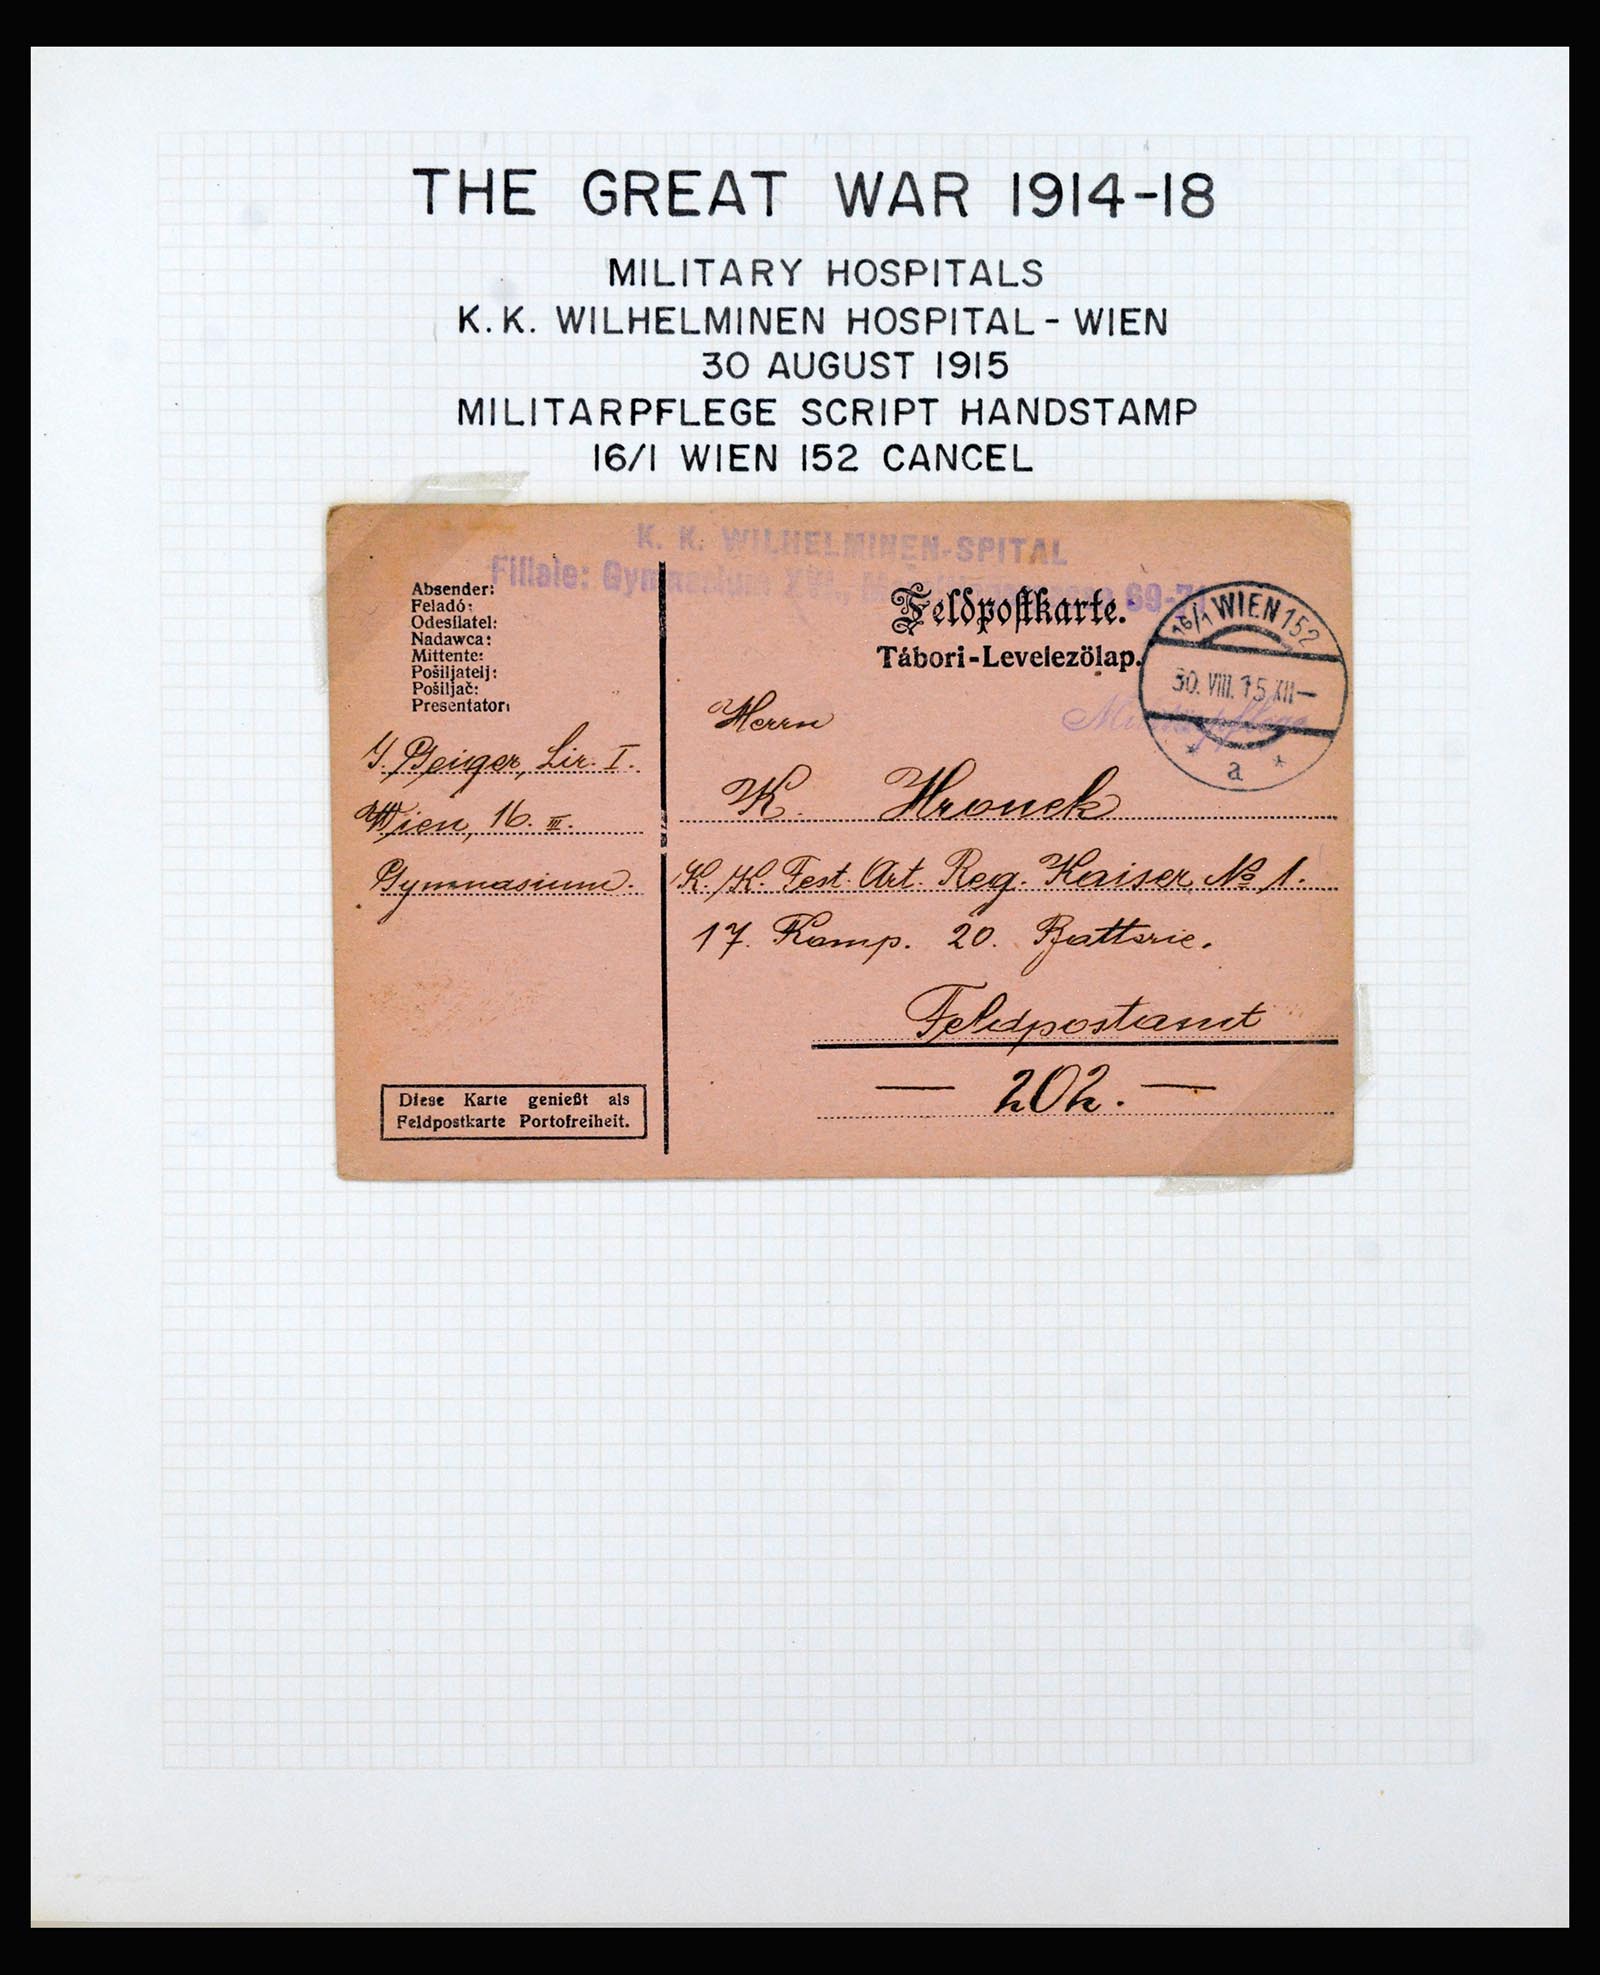 THE GREAT WAR 1914-18
MILITARY HOSPITALS
K.K. WILHELMINEN HOSPITAL - WIEN
30 AUGUST 1915
MILITARPFLEGE SCRIPT HANDSTAMP
16/1 WIEN 152 CANCEL
K. K. WILHELMINEN-SPITAL
Filiale: Gymnasium XVI., 69-71
Absender:
Feladó:
Odesílatel:
Nadawca:
Mittente:
Pošiljatelj:
Pošiljač:
Presentator:
J. Geiger, Lir. I.
Wien, 16. III.
Gymnasium.
Diese Karte genießt als
Feldpostkarte Portofreiheit.
Feldpostkarte.
Tábori-Levelezölap.
16/1 WIEN 152
30. VIII. 15 XII—
* a *
Militärpflege
Herrn
K. Hronek
K. K. Fest. Art. Reg. Kaiser No 1.
17. Komp. 20. Batterie.
Feldpostamt
— 202. —